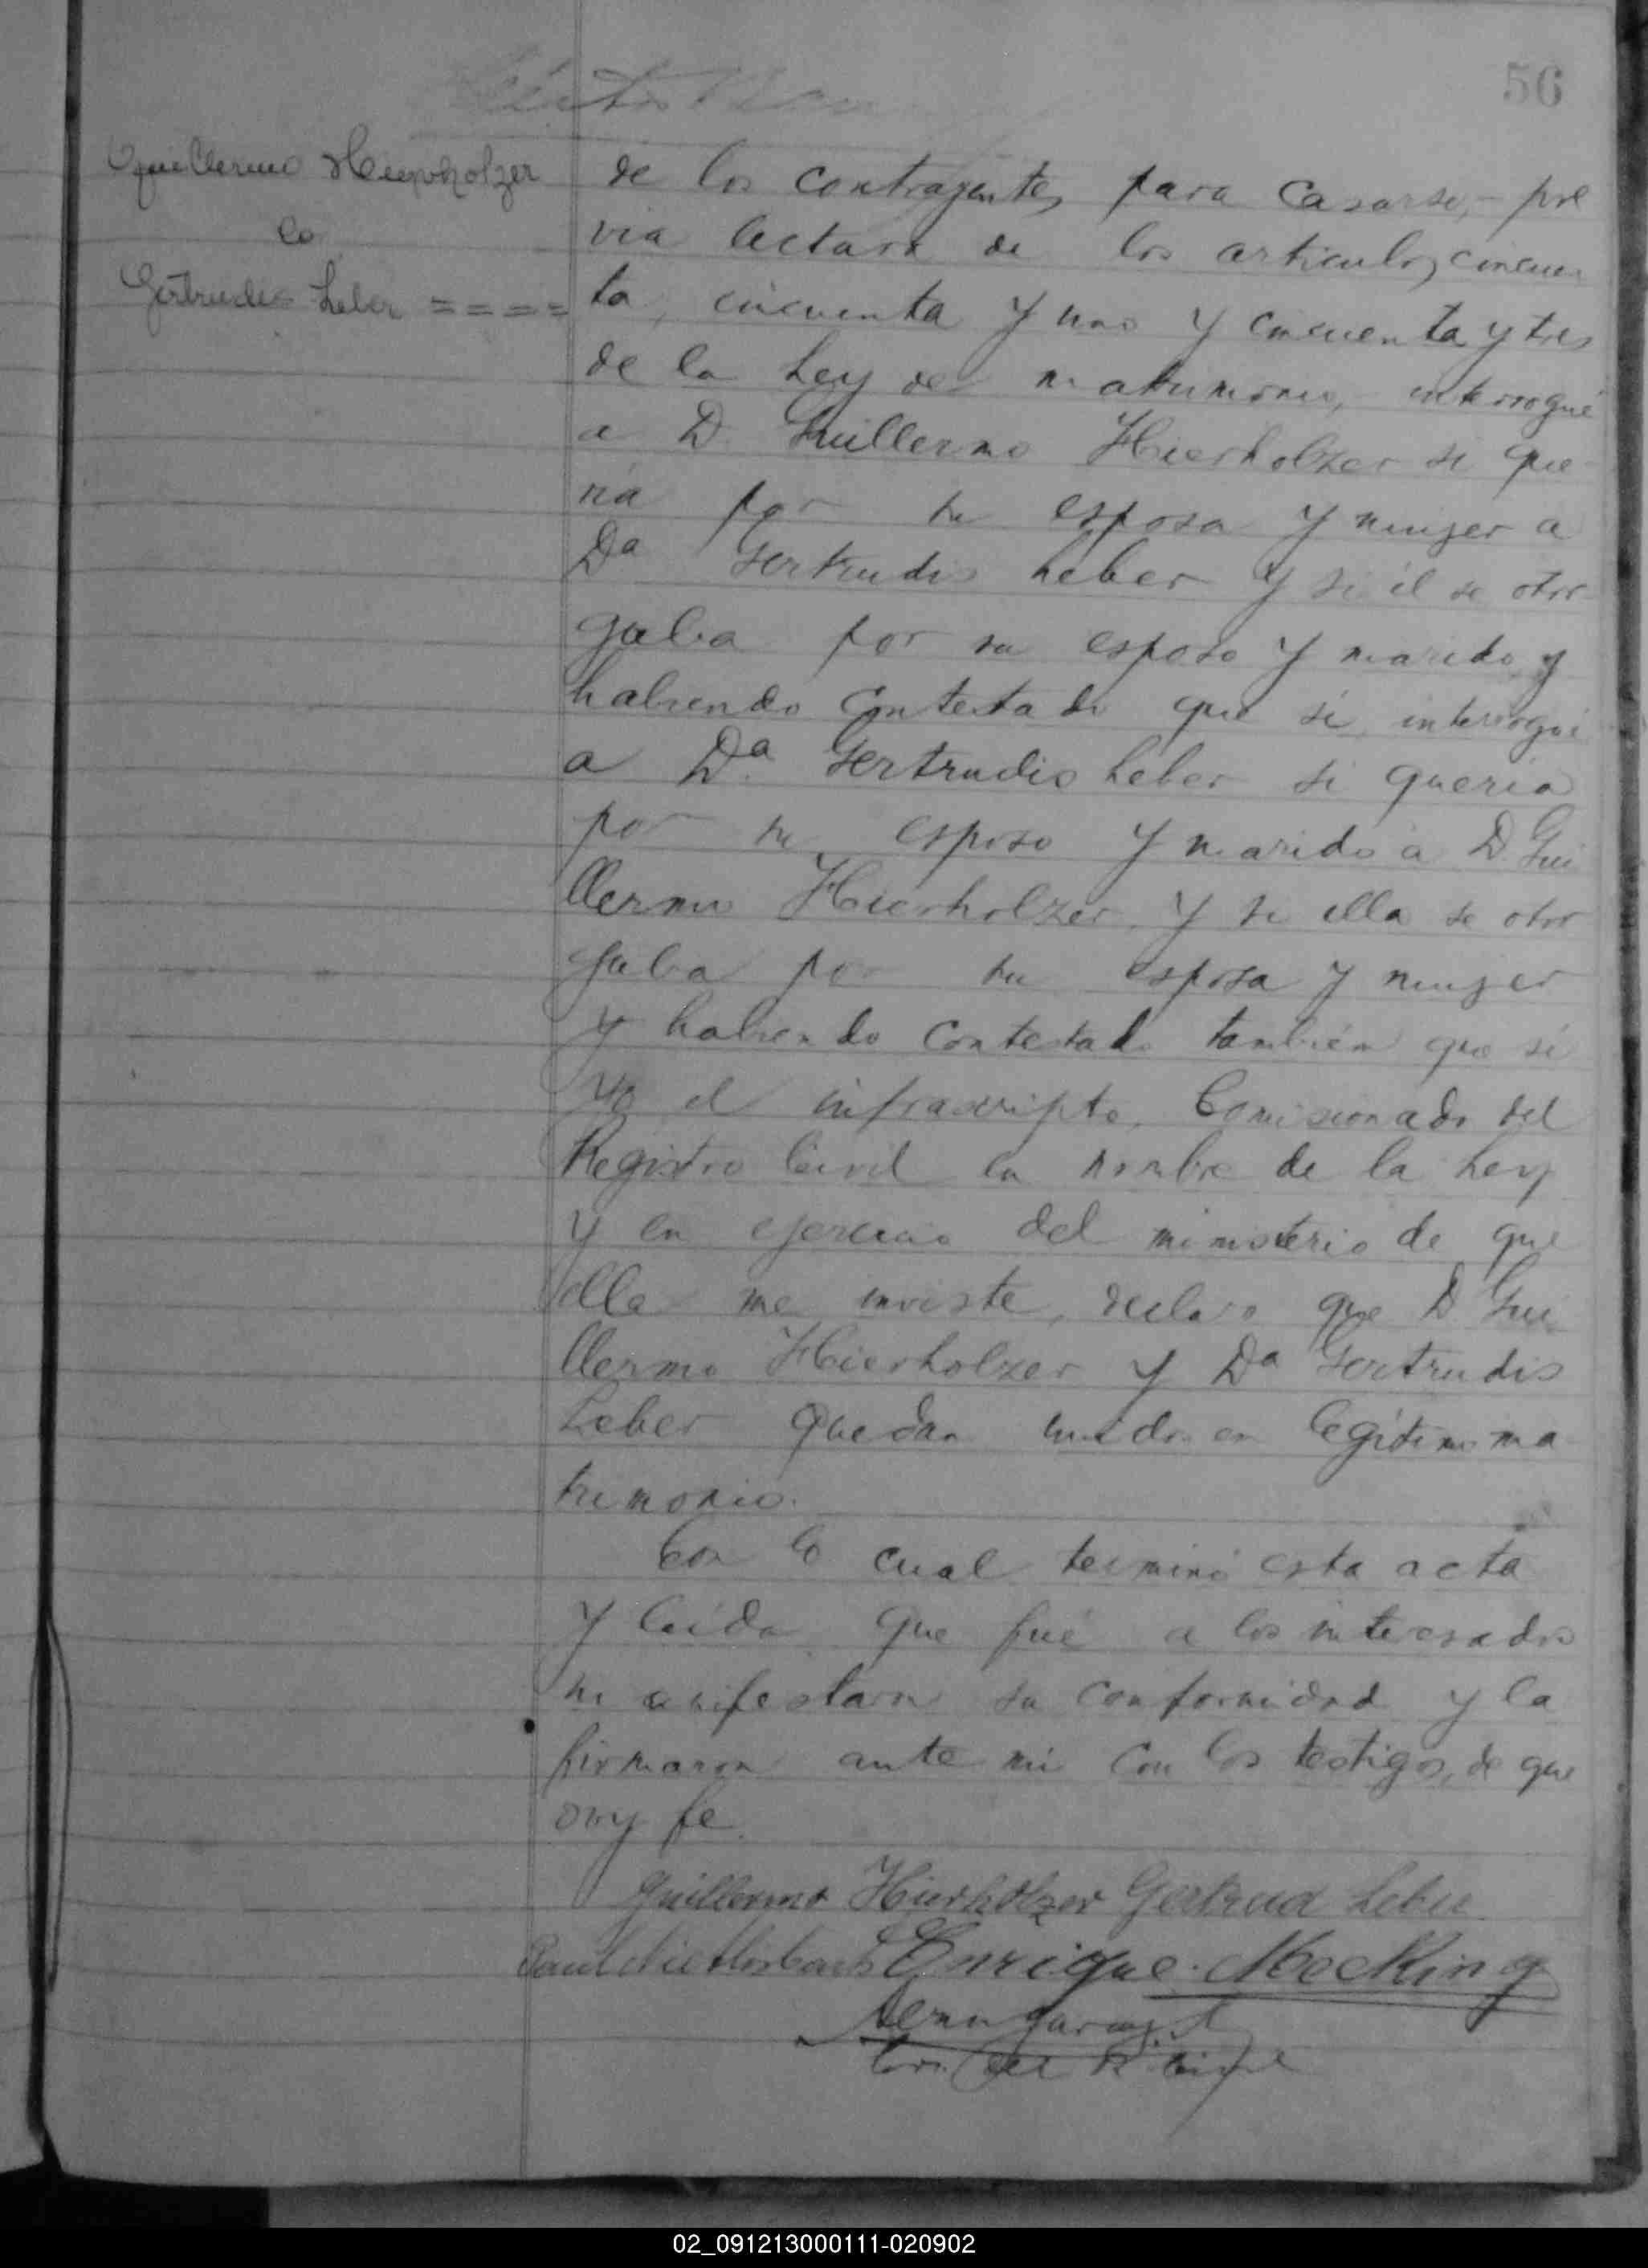 56
Guillermo Hierholzer
co
Gertrudis Leber ====
de los contrayentes para casarse,- pre
via lectura de los articulos, cincuen
ta, cincuenta y uno y cincuenta y tres
de la Ley de matrimonio, interrogué
a D. Guillermo Hierholzer si que-
ria por su esposa y mujer a
Dª Gertrudis Leber y si él se otor-
gaba por su esposo y marido y
habiendo contestado que si, interrogué
a Dª. Gertrudis Leber si queria
por su esposo y marido a D. Gui
llermo Hierholzer, y si ella se otor
gaba por su esposa y mujer
y habiendo contestado también que si
yo el infrascripto, Comisionado del
Registro Civil en nombre de la Ley
y en ejercicio del ministerio de que
ella me inviste, declaro que D. Gui
llermo Hierholzer y Dª Gertrudis
Leber quedan unidos en legitimo ma
trimonio.
Con lo cual terminó esta acta
y leída que fué a los interesados
manifestaron su conformidad y la
firmaron ante mi con los testigos, de que
doy fe.
Guillermo Hierholzer Gertrud Leber
Paul Enrique Mocking
Com. del R. Civil
02_091213000111-020902